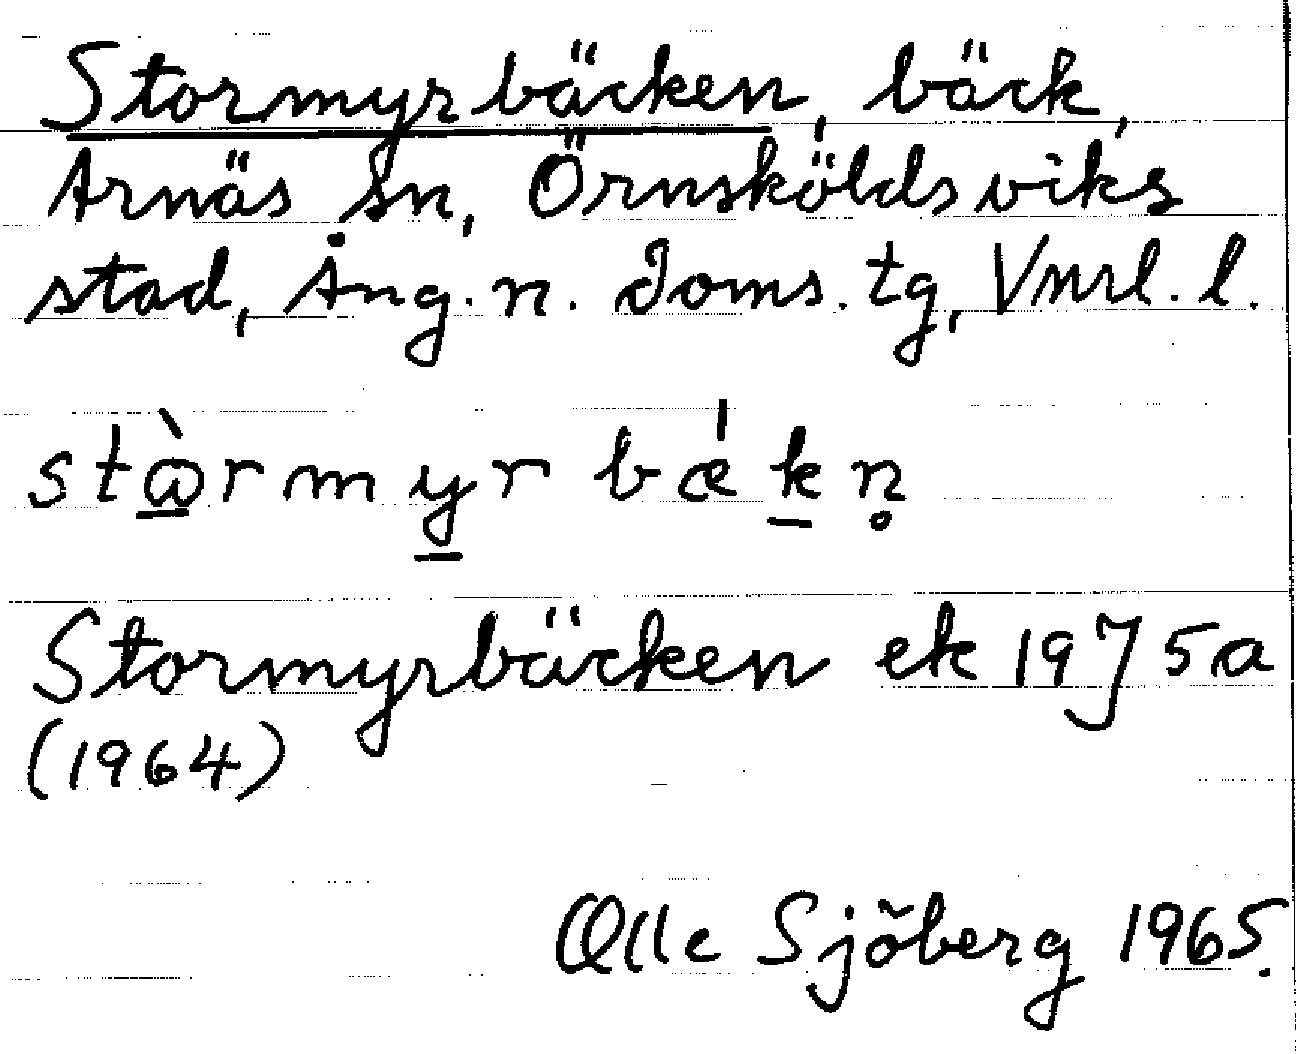 Stormyrbäcken, bäck,
Arnäs sn, Örnsköldsviks
stad, Ång. n. Doms. tg, Vnrl. l.
stɷ̀rmyr bǽkn̥
Stormyrbäcken ek 19J5a
(1964)
Olle Sjöberg 1965.